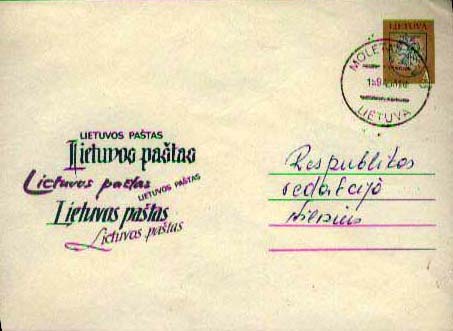 LIETUVA
MOLĖTAI
LIETUVA
LIETUVOS PAŠTAS
Lietuvos paštas
Lietuvos paštas
LIETUVOS PAŠTAS
Lietuvos paštas
Lietuvos paštas
Respublikos
redakcija
Vilnius